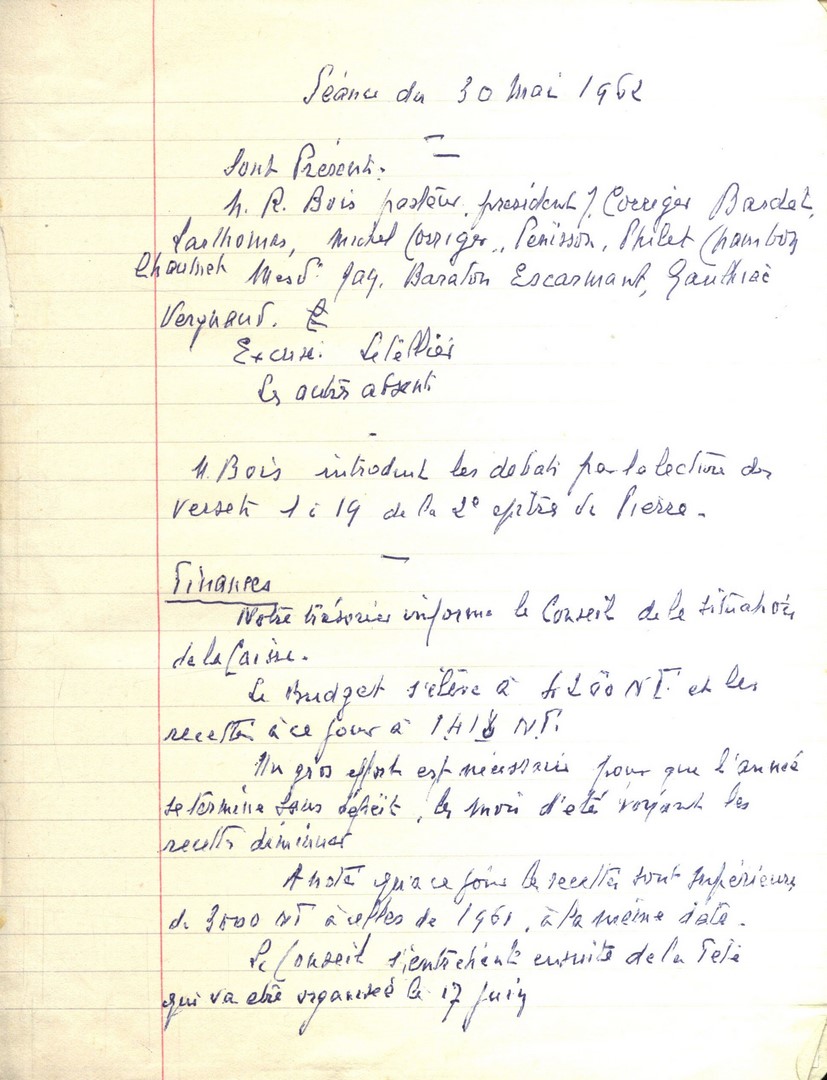 Séance du 30 Mai 1962
Sont Présents.
M. R. Bois pasteur, président, J. Corriger Bardet,
Lasthomas, Michel Corriger, Penisson, Philet Chambon
Chaulnet Mesd. Jay, Baraton Escarmant, Gauthier
Vergnaud.
Excusé: Letellier
Les autres absents
M. Bois introduit les débats par la lection des
versets 1 à 19 de la 2e epitre de Pierre.
Finances
Notre trésorier informe le Conseil de la situation
de la Caisse.
Le Budget s'élève à NF. et les
recettes à ce jour à NF.
Un gros effort est nécessaire pour que l'année
se termine sans déficit, les mois d'été voyant les
recettes diminuer
A noté qu'a ce jour les recettes sont supérieures
de 3000 NF à celles de 1961, à la même date.
Le Conseil s'entretient ensuite de la Fete
qui va etre organisée le 17 Juin